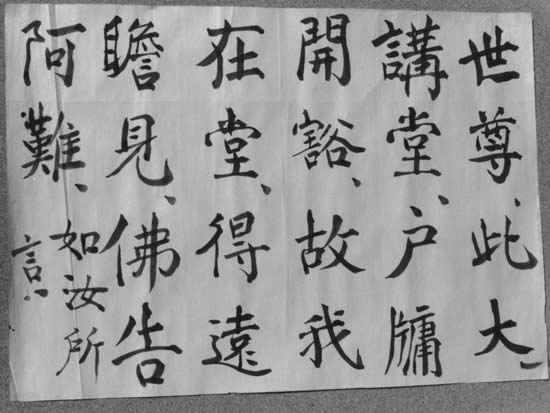 世尊、此大
講堂、户牖
開豁、故我
在堂、得遠
瞻見、佛告
阿難、如汝所
言、